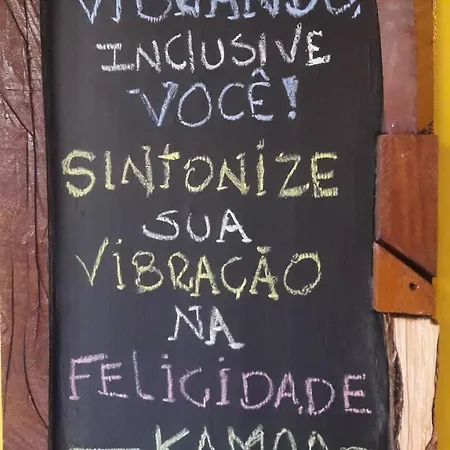 VIBRANDO,
INCLUSIVE
VOCÊ!
SINTONIZE
SUA
VIBRAÇÃO
NA
FELICIDADE